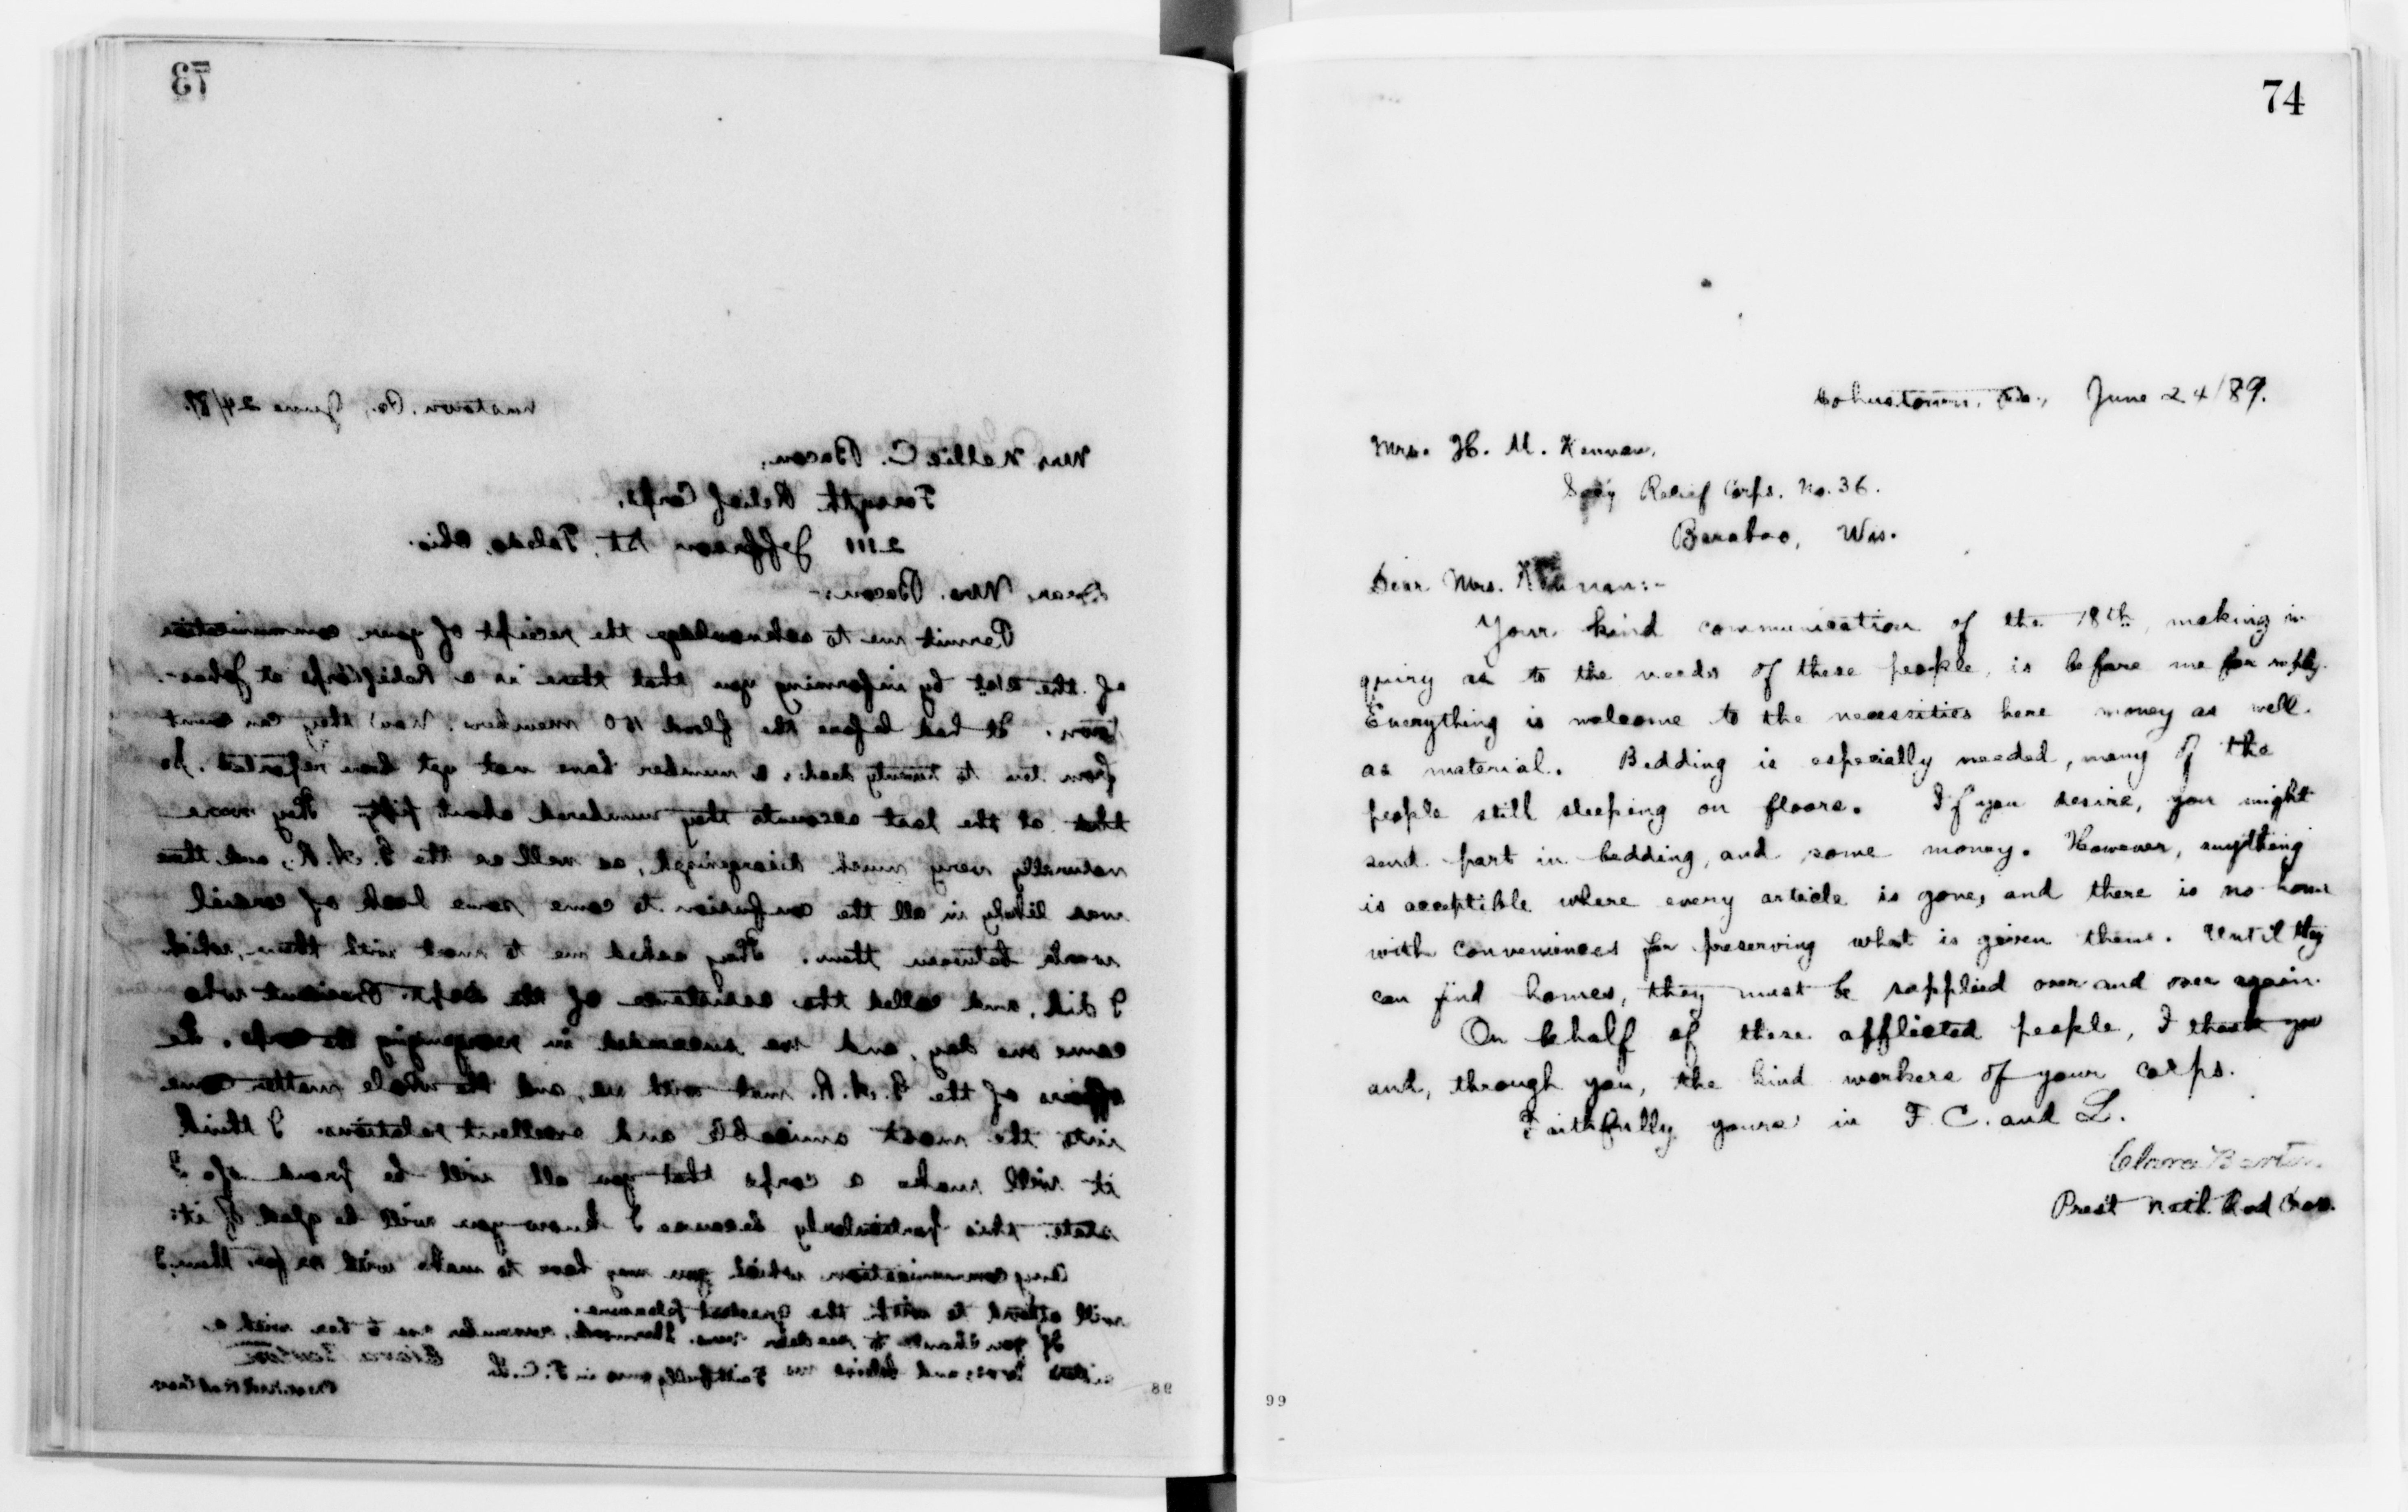 73
Johnstown, Pa., June 24/89.
Mrs Nellie C. Bacon,
Forsyth Relief Corps,
2111 Jefferson St, Toledo, Ohio.
Dear Mrs. Bacon:-
Permit me to acknowledge the receipt of your communication
of the by informing you that there is a Relief Corps at Johns-
town. It had before the flood 150 members. Now they can count
from ten to twenty dead; a number have not yet been reported. So
that at the last accounts they numbered about fifty. They were
naturally very much disorganized, as well as the G. A. R., and there
was likely in all the confusion to come some lack of cordial
work between them. They asked me to meet with them, which
I did, and called the assistance of the Dept. President who
came one day, and we succeeded in reorganizing the corps. The
officers of the G. A. R. met with us, and the whole matter came
into the most amicable and excellent relations. I think
it will make a corps that you all will be proud of. I
state this particularly because I know you will be glad of it.
Any communication which you may have to make with me for them I
will attend to with the greatest pleasure.
If you chance to see dear Mrs. remember me to her with a
love; and believe me Faithfully yours in F. C. L. Clara Barton
Pres. Natl Red Cross
89
74
Johnstown, Pa., June 24/89.
Mrs. H. M. Kennan,
Relief Corps. No. 36.
Baraboo, Wis.
Dear Mrs. Kennan:-
Your kind communication of the 18th, making in-
quiry as to the needs of these people, is before me for reply.
Everything is welcome to the necessities here money as well
as material. Bedding is especially needed, many of the
people still sleeping on floors. If you desire, you might
send part in bedding, and some money. However, anything
is acceptible where every article is gone, and there is no home
with conveniences for preserving what is given them. Until they
can find homes, they must be supplied over and over again.
On behalf of these afflicted people, I thank you
and, through you, the kind workers of your corps.
Faithfully yours in F. C. and L.
Clara Barton
Pres't Natl. Red Cross.
99